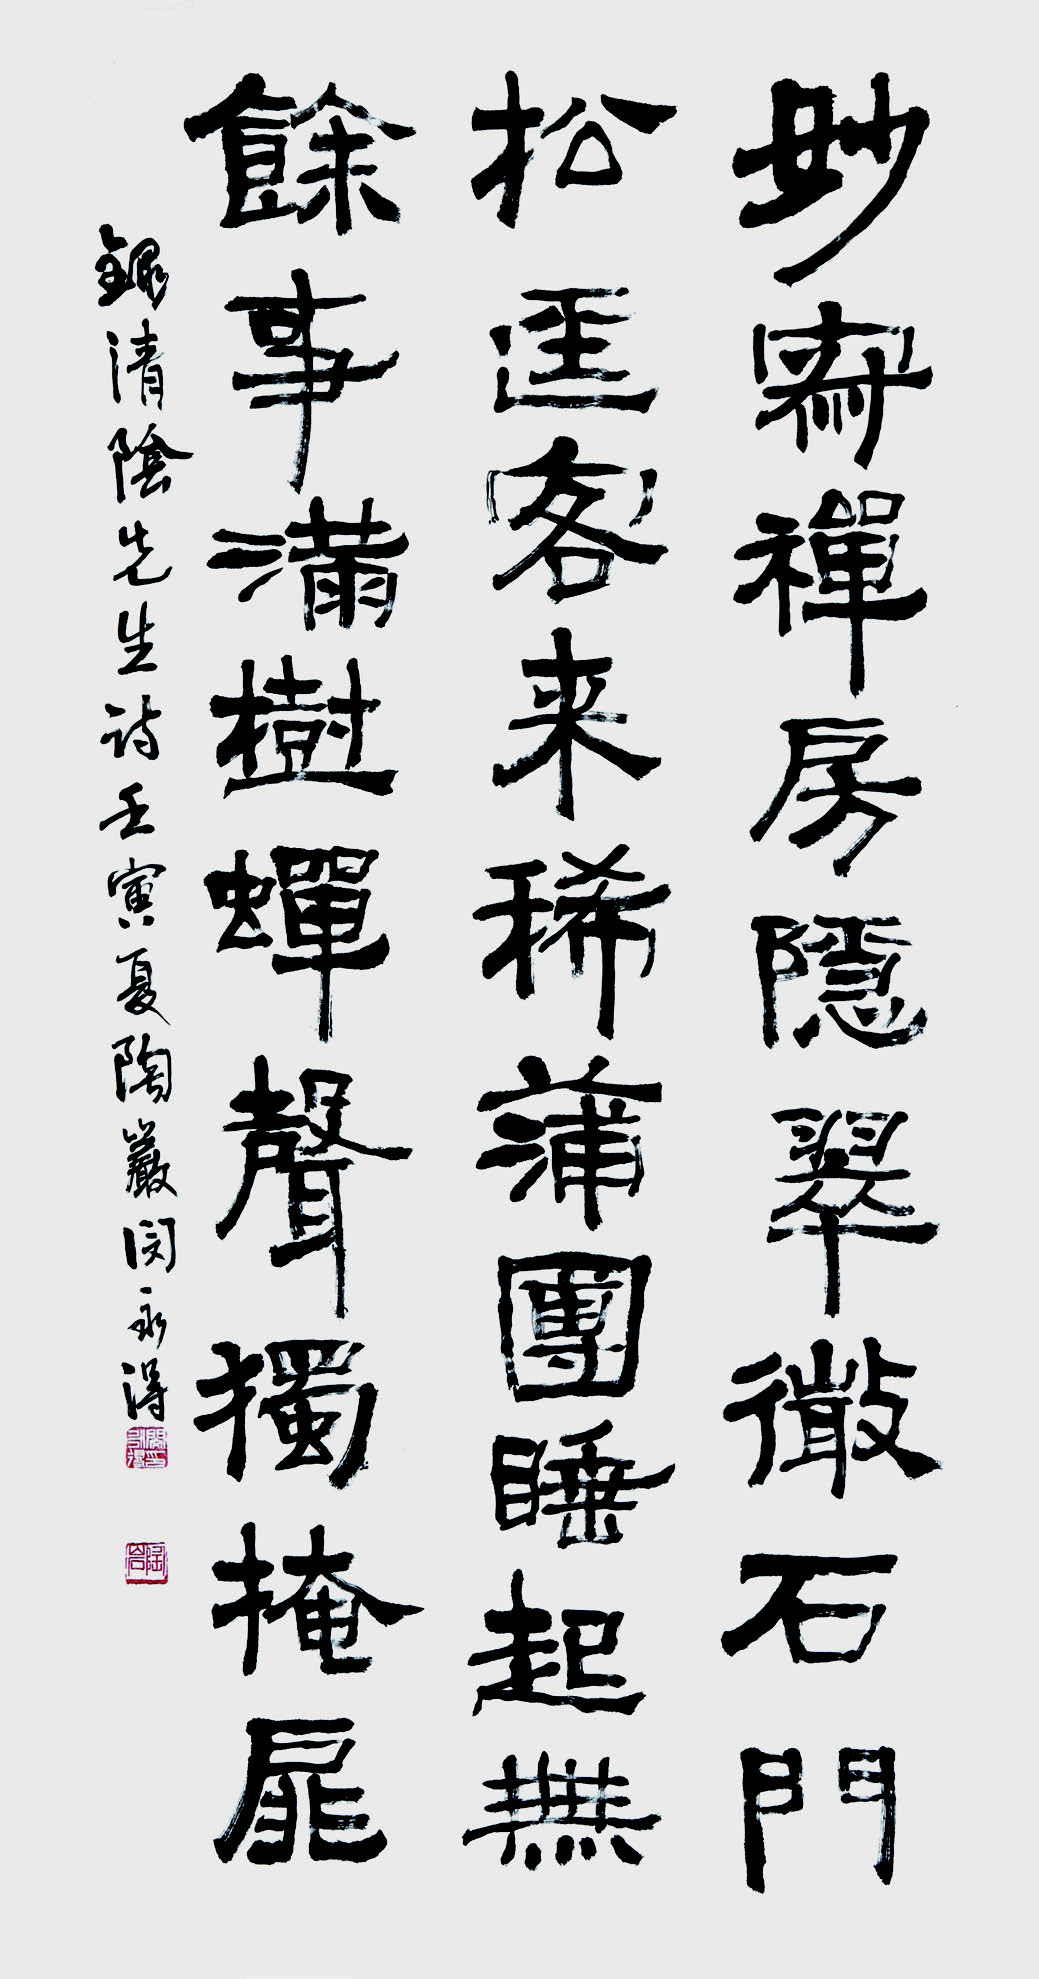 妙寂禪房隱翠微石門
松逕客来稀蒲團睡起無
餘事滿樹蟬聲獨掩扉
錄清陰先生詩壬寅夏陶巖閔永得